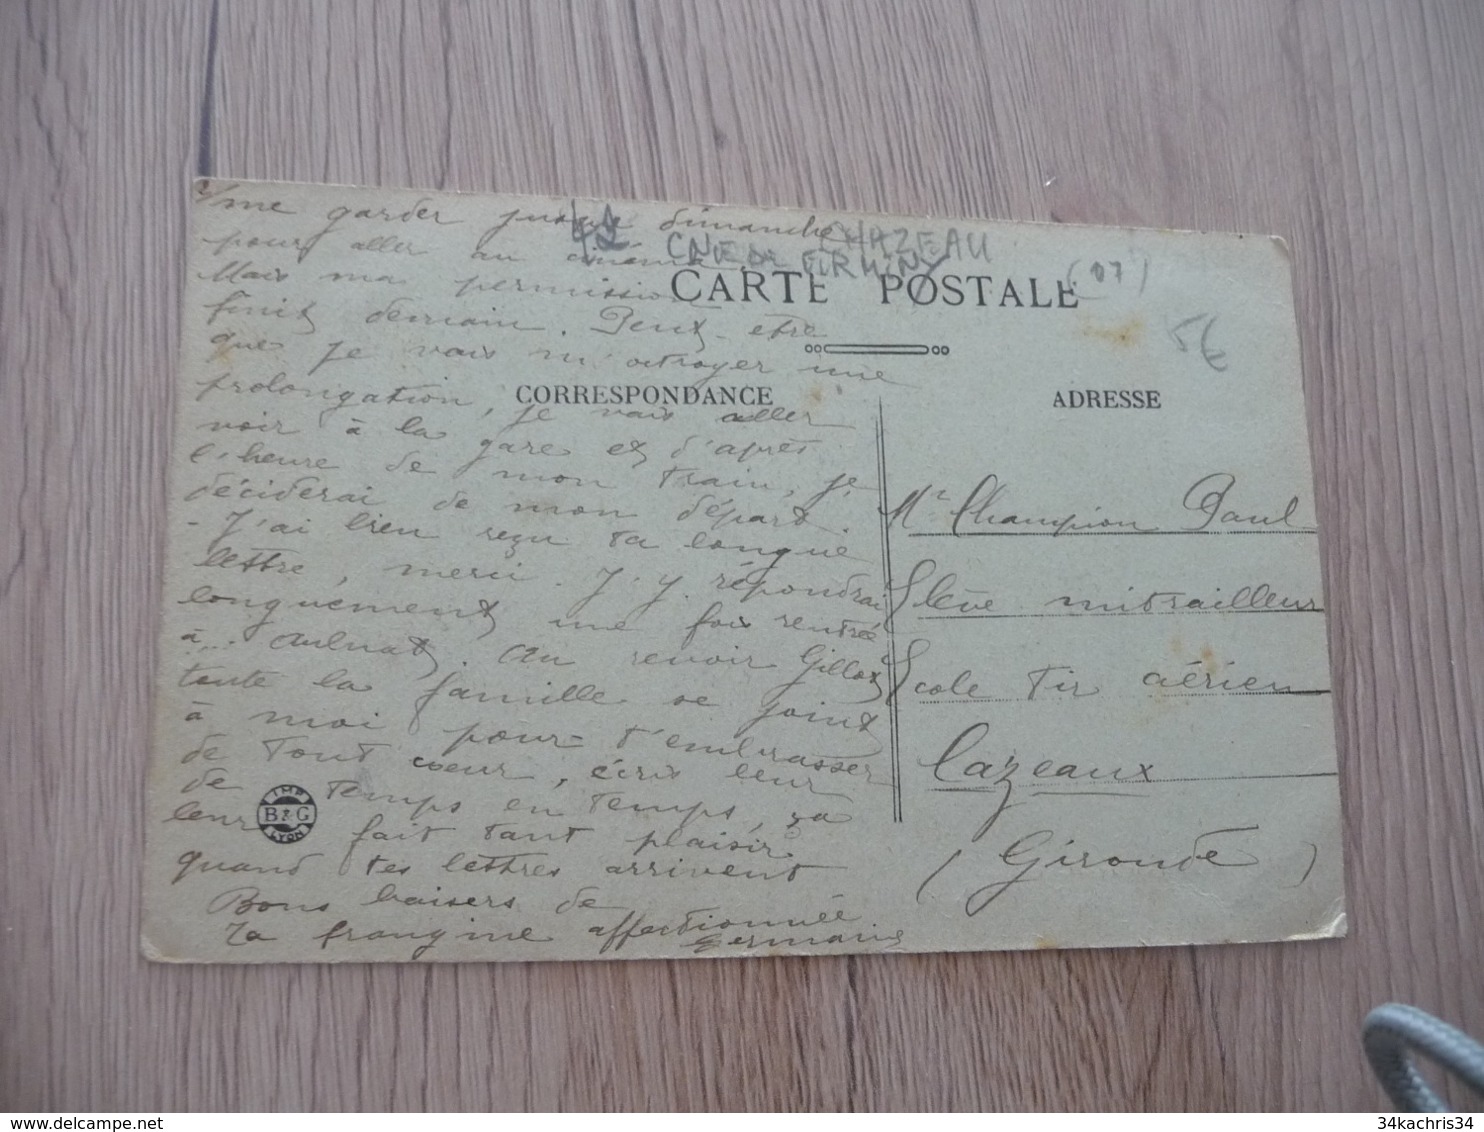 me garder jusque dimanche
pour aller au cinéma.
Mais ma permission
finit demain. Peut-etre
que je vais m'octroyer une
prolongation, je vais aller
voir à la gare et d'après
l'heure de mon train, je
déciderai de mon départ.
- J'ai bien reçu ta longue
lettre, merci. J'y répondrai
longuement une fois rentrée
à... Aulnat. Au revoir Gillot
toute la famille se joint
à moi pour t'embrasser
de tout coeur, écris leur
de temps en temps, ça
leur fait tant plaisir
quand tes lettres arrivent
Bons baisers de
Ta frangine affectionnée
Germaine
IMP
B & G
LYON
42 CHAZEAU
CNE DE FIRMINY
(07)
CARTE POSTALE
5€
CORRESPONDANCE
ADRESSE
Mr Champion Paul
Elève mitrailleur
Ecole Tir aérien
Cazeaux
(Gironde)
34kachris34